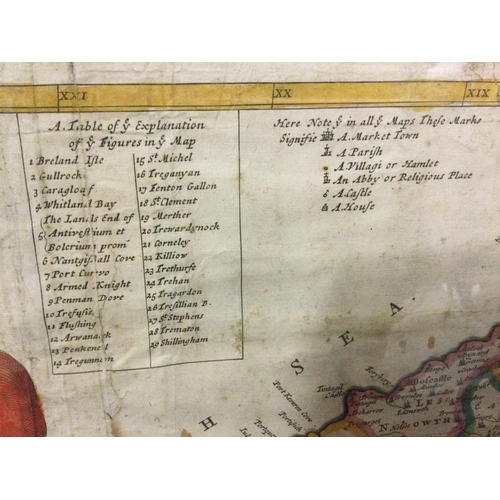 XXI
XX
XIX
A Table of ẏ Explanation
of ẏ Figures in ẏ Map
1 Breland Isle
2 Gullrock
3 Caragloaf
4 Whitland Bay
The Lands End of
5 Antivestium et
Bolerium prom
6 Nantgissall Cove
7 Port Curvo
8 Armed Knight
9 Penman Dove
10 Trefusie
11 Flushing
12 Arwanack
13 Penkenel
14 Tregunnan
15 St. Michel
16 Treganyan
17 Fenton Gallon
18 St. Clement
19 Merther
20 Trewardynock
21 Corneley
22 Killiow
23 Trethurfe
24 Trehan
25 Tragardon
26 Tresillian B.
27 St. Stephens
28 Trematon
29 Shillingham
Here Note ẏ in all ẏ Maps These Marks
Signifie A Market Town
A Parish
A Villagi or Hamlet
An Abby or Religious Place
A Castle
A House
H
SEA
Port Keveren Cove
Boscastle
LES
N
OWTH